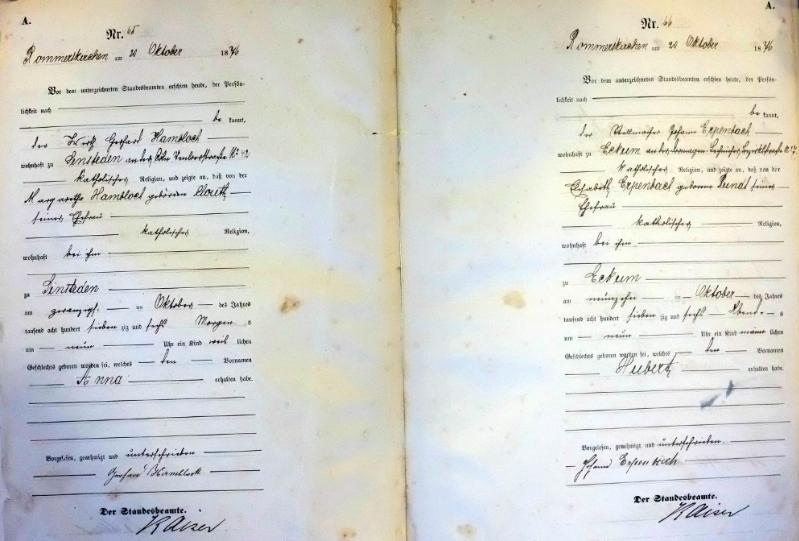 A.
Nr. 65
Rommerskirchen am 20 Oktober 1876
Vor dem unterzeichneten Standesbeamten erschien heute, der Persön-
lichkeit nach
be kannt,
der Wirth Gerhard Hambloch
wohnhaft zu Sinsteden an der
katholischer Religion, und zeigte an, daß von der
Margaretha Hambloch geborenen
seiner Ehefrau
katholischer Religion,
wohnhaft bei ihm
zu Sinsteden
am zwanzigst. ten Oktober des Jahres
tausend acht hundert sieben zig und sechs Morgens
um neun Uhr ein Kind weib lichen
Geschlechts geboren worden sei, welches den Vornamen
Anna erhalten habe.
Vorgelesen, genehmigt und unterschrieben
Gerhard Hambloch
Der Standesbeamte.
Kaiser
A.
Nr. 66
Rommerskirchen am 20 Oktober 1876
Vor dem unterzeichneten Standesbeamten erschien heute, der Persön-
lichkeit nach
be kannt,
der Stellmacher Johann Erpenbach
wohnhaft zu Eckum an der
katholischer Religion, und zeigte an, daß von der
Elisabeth Erpenbach geborene seiner
Ehefrau
katholischer Religion,
wohnhaft bei ihm
zu Eckum
am neunzehn ten Oktober des Jahres
tausend acht hundert sieben zig und sechs Abends
um neun Uhr ein Kind männ lichen
Geschlechts geboren worden sei, welches den Vornamen
Hubert erhalten habe.
Vorgelesen, genehmigt und unterschrieben.
Johann
Der Standesbeamte.
Kaiser